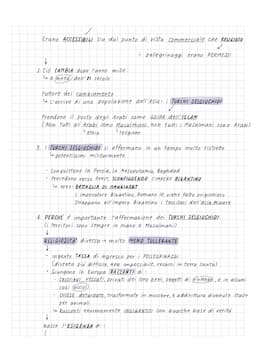 Erano ACCESSIBILI sia dal punto di vista commerciale che RELIGIOSO
↓
i pellegrinaggi erano PERMESSI
2. Ciò CAMBIA dopo l'anno mille:
↳ a metà dell'XI secolo
Fattore del cambiamento
↳ L'arrivo di una popolazione dall'Asia: i TURCHI SELGIUCHIDI
Prendono il posto degli Arabi come GUIDA dell'ISLAM
(Non tutti gli Arabi sono Musulmani, non tutti i Musulmani sono Arabi)
↳ Etnia ↳ religione
3. I TURCHI SELGIUCHIDI si affermano in un tempo molto ristretto
↳ potentissimi militarmente
• Conquistano la Persia, la Mesopotamia, Baghdad
• Procedono verso Ovest, SCONFIGGENDO l'impero BIZANTINO
↳ 1071: BATTAGLIA DI MANZICERT
L'imperatore Bizantino, Romano IV, viene fatto prigioniero
Strappano all'impero Bizantino i territori dell'Asia Minore
4. PERCHÉ è importante l'affermazione dei TURCHI SELGIUCHIDI?
(I territori sono sempre in mano ai Musulmani)
RELIGIOSITÀ diversa → molto MENO TOLLERANTE
• Ingente TASSA di ingresso per i PELLEGRINAGGI
(diventa più difficile, non impossibile, recarsi in terra santa)
• Giungono in Europa RACCONTI di:
- CRISTIANI VESSATI, privati dei loro beni, oggetti di violenza e, in alcuni
casi, uccisi
- CHIESE deturpate, trasformate in moschee, e addirittura diventate stalle
per animali
↳ Racconti enormemente INGIGANTITI con qualche base di verità
↓
Nasce l'ESIGENZA di: